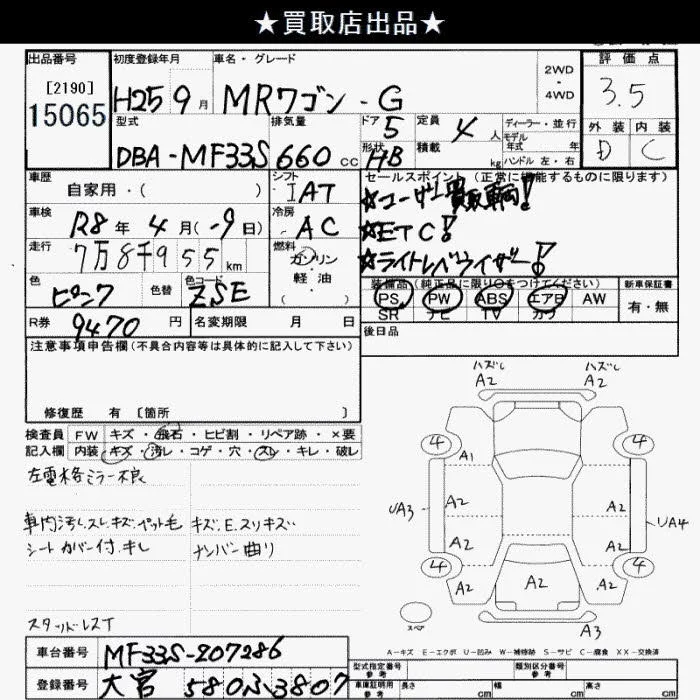 ★買取店出品★
出品番号 初度登録年月 車名・グレード 2WD・4WD 評価点
[2190]
15065 H25 9月 MRワゴン - G 3.5
型式 排気量 ドア 5 定員 4人 ディーラー・並行 外装 内装
モデル年式 年
DBA-MF33S 660cc 形状 HB 積載 kg ハンドル 左・右 D C
車歴 シフト セールスポイント (正常に機能するものに限ります)
自家用・( ) IAT ☆ユーザー買取車両!
車検 R8年4月(-9日) 冷房 AC ☆ETC!
走行 7万8千955km 燃料 ガソリン・軽油・( ) ☆ライトレベライザー!
色 ピンク 色替 色コード ZSE 装備品 (純正品に限り○をつけてください) 新車保証書
PS PW ABS エアB AW 有・無
SR ナビ TV カワ
R券 9470円 名変期限 月 日 後日品
注意事項申告欄(不具合内容等は具体的に記入して下さい)
修復歴 有 〔箇所 〕
検査員 FW キズ・飛石・ヒビ割・リペア跡・×要
記入欄 内装 キズ・汚レ・コゲ・穴・スレ・キレ・破レ
左電格ミラー不良
車内汚レ.スレ.キズ.ペット毛 キズ.E.スリキズ
シートカバー付.キレ ナンバー曲り
スタッドレスT
車台番号 MF33S-207286
登録番号 大宮 580ふ3807
ハズレ ハズレ
A2 A2
4 4
A1
UA3 A2 A2 UA4
A2 A2
4 4
A2 A2 A2
スペア A3
A-キズ E-エクボ U-凹み W-補修跡 S-サビ C-腐食 XX-交換済
型式指定番号 参考 類別区分番号 参考
車庫証明用 参考 長さ cm 幅 cm 高さ cm